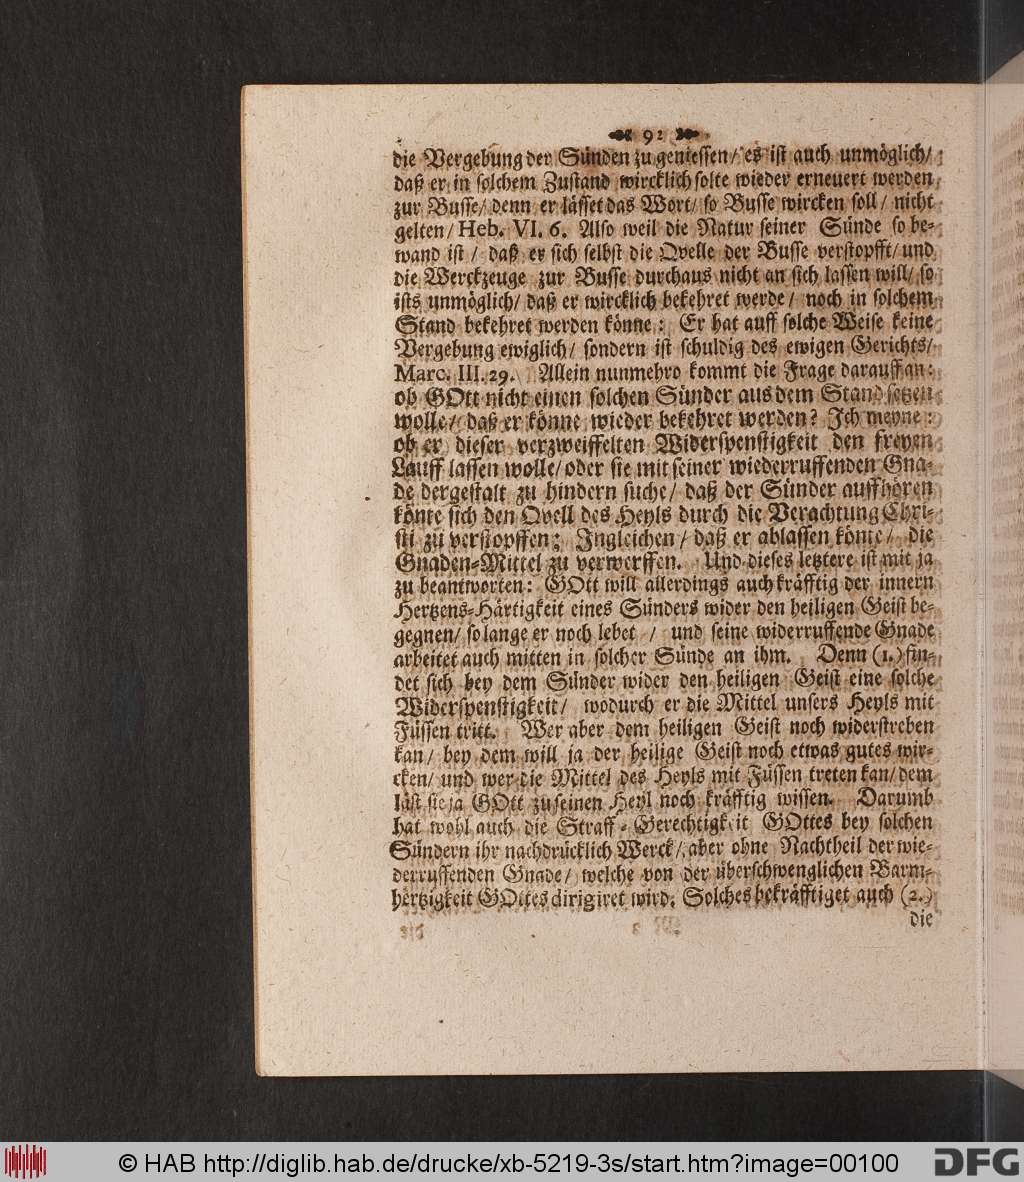 92
die Vergebung der Sünden zu geniessen/ es ist auch unmöglich/
daß er in solchem Zustand wircklich solte wieder erneuert werden
zur Busse/ denn er lässet das Wort/ so Busse wircken soll/ nicht
gelten/ Heb. VI. 6. Also weil die Natur seiner Sünde so be-
wand ist / daß er sich selbst die Qvelle der Busse verstopfft/ und
die Werckzeuge zur Busse durchaus nicht an sich lassen will/ so
ists unmöglich/ daß er wircklich bekehret werde/ noch in solchem
Stand bekehret werden könne: Er hat auff solche Weise keine
Vergebung ewiglich/ sondern ist schuldig des ewigen Gerichts/
Marc. III. 29. Allein nunmehro kommt die Frage darauff an:
ob GOtt nicht einen solchen Sünder aus dem Stand setzen
wolle/ daß er könne wieder bekehret werden? Ich meyne:
ob er dieser verzweiffelten Widerspenstigkeit den freyen
Lauff lassen wolle/ oder sie mit seiner wiederruffenden Gna-
de dergestalt zu hindern suche/ daß der Sünder auffhören
könte sich den Qvell des Heyls durch die Verachtung Chri-
sti zu verstopffen; Ingleichen/ daß er ablassen könte/ die
Gnaden-Mittel zu verwerffen. Und dieses letztere ist mit ja
zu beantworten: GOtt will allerdings auch kräfftig der innern
Hertzens-Härtigkeit eines Sünders wider den heiligen Geist be-
gegnen/ so lange er noch lebet / und seine widerruffende Gnade
arbeitet auch mitten in solcher Sünde an ihm. Denn (1.) fin-
det sich bey dem Sünder wider den heiligen Geist eine solche
Widerspenstigkeit/ wodurch er die Mittel unsers Heyls mit
Füssen tritt. Wer aber dem heiligen Geist noch widerstreben
kan/ bey dem will ja der heilige Geist noch etwas gutes wir-
cken/ und wer die Mittel des Heyls mit Füssen treten kan/ dem
läst sie ja GOtt zu seinen Heyl noch kräfftig wissen. Darumb
hat wohl auch die Straff-Gerechtigkeit GOttes bey solchen
Sündern ihr nachdrücklich Werck/ aber ohne Nachtheil der wie-
derruffenden Gnade/ welche von der überschwenglichen Barm-
hertzigkeit GOttes dirigiret wird. Solches bekräfftiget auch (2.)
die
© HAB http://diglib.hab.de/drucke/xb-5219-3s/start.htm?image=00100
DFG